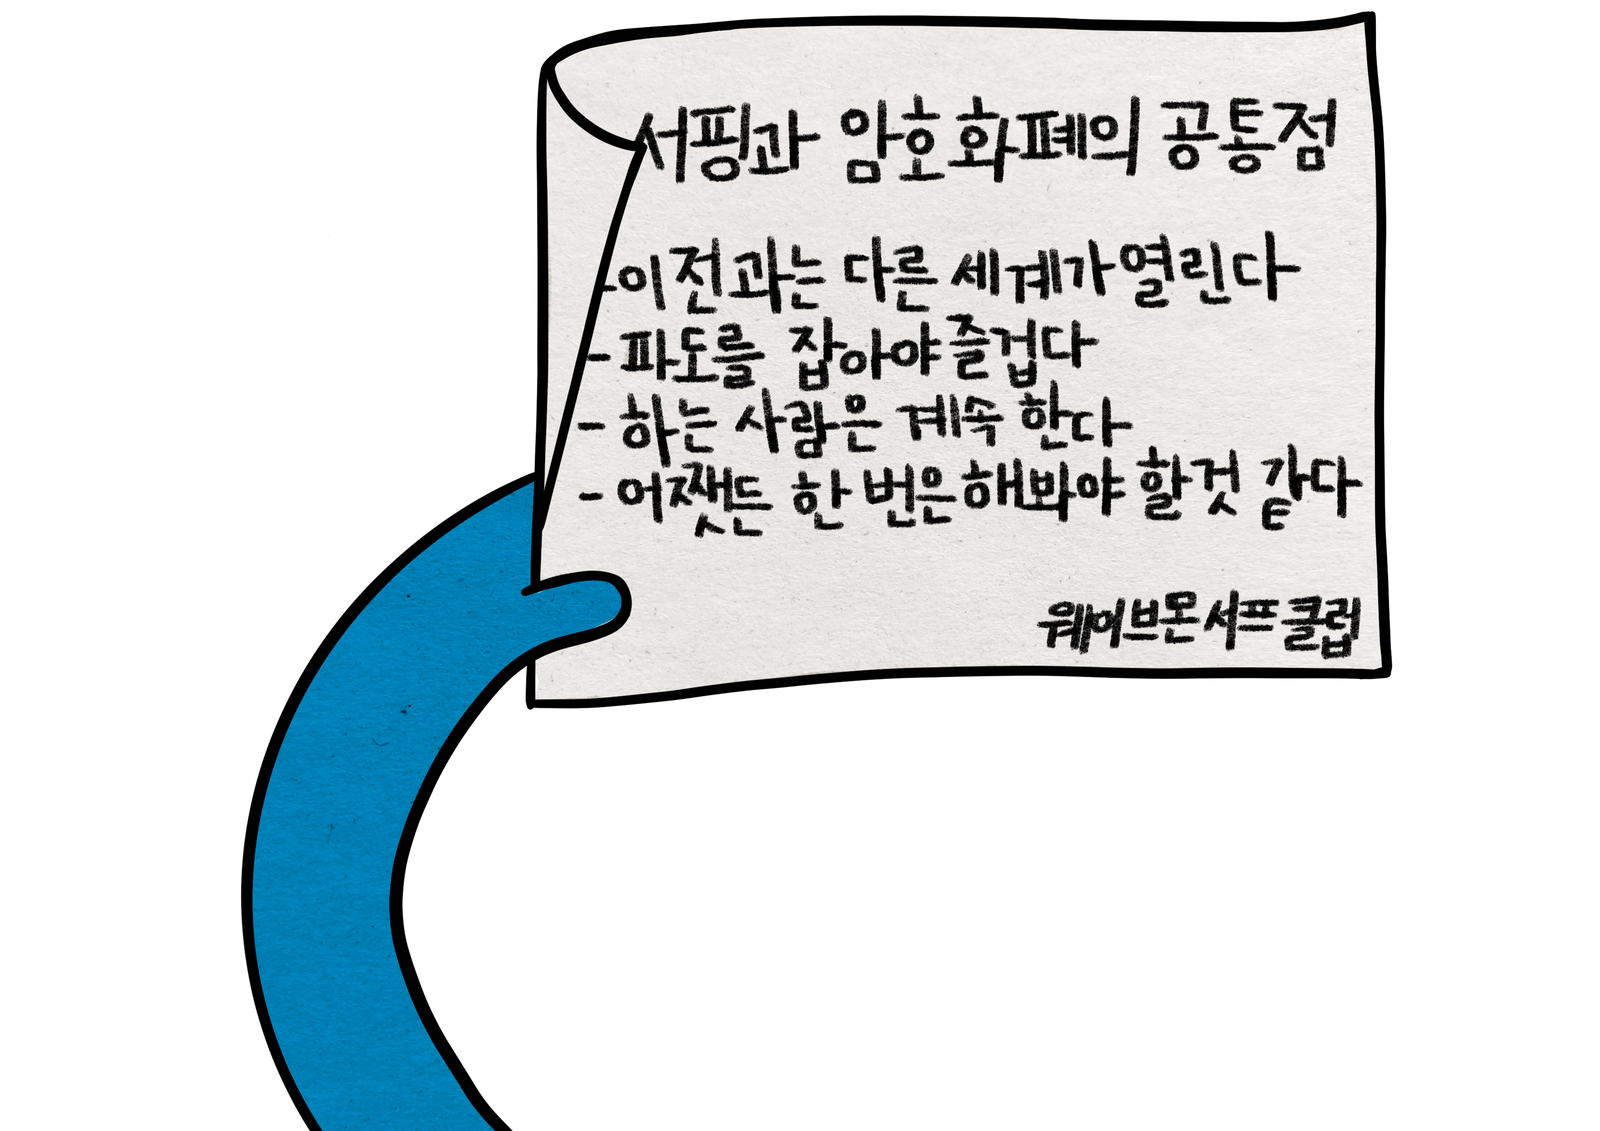 서핑과 암호화폐의 공통점
-이전과는 다른 세계가 열린다
- 파도를 잡아야 즐겁다
- 하는 사람은 계속 한다
- 어쨋든 한 번은 해봐야 할것 같다
웨이브몬 서프 클럽